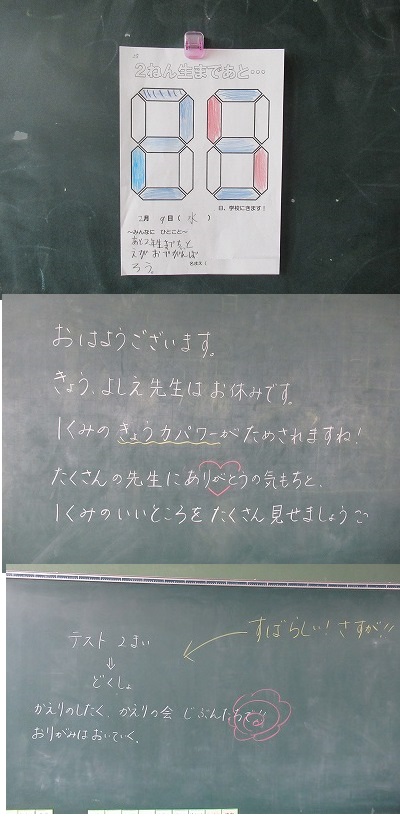 2ねん生まであと…
日、学校にきます！
2月 9日（水）
～みんなに ひとこと～
あと2年生までずっと
えがおでがんば
ろう。
名まえ（
おはようございます。
きょう、よしえ先生はお休みです。
1くみのきょう力パワーがためされますね！
たくさんの先生にありがとうの気もちと、
1くみのいいところをたくさん見せましょう
すばらしい！さすが!!
テスト 2まい
⇓
どくしょ
かえりのしたく、かえりの会 じぶんたちで!!
おりがみはおいていく。